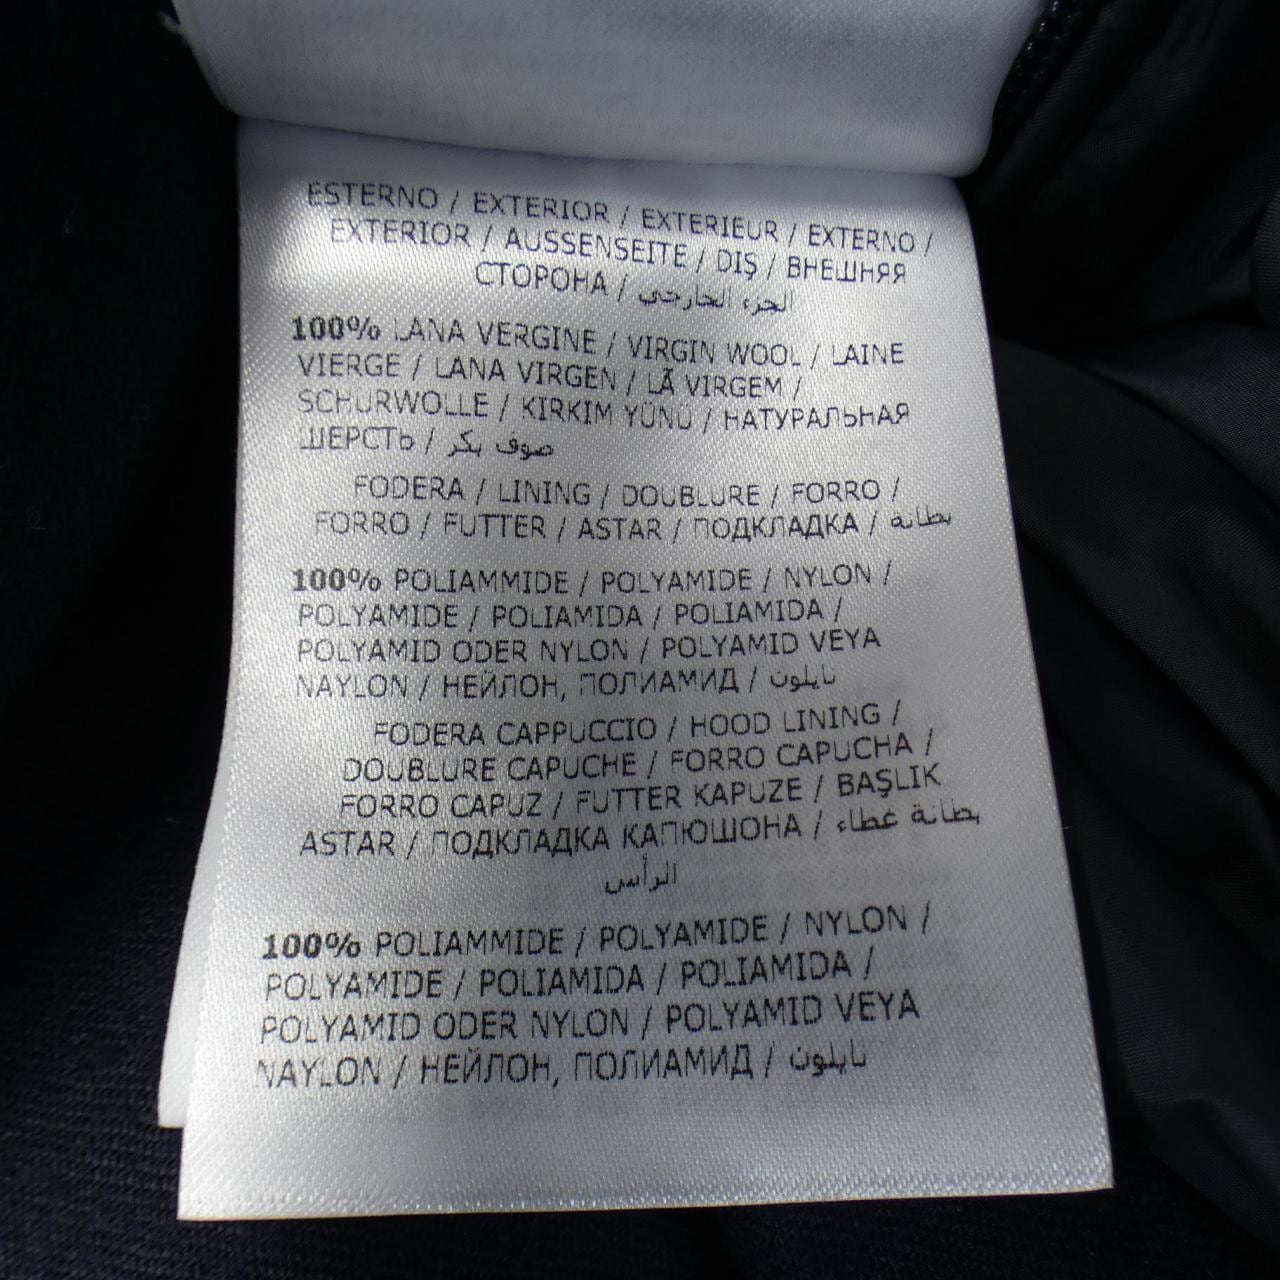 ESTERNO / EXTERIOR / EXTERIEUR / EXTERNO /
EXTERIOR / AUSSENSEITE / DIŞ / ВНЕШНЯЯ
СТОРОНА / الجزء الخارجي
100% LANA VERGINE / VIRGIN WOOL / LAINE
VIERGE / LANA VIRGEN / LÃ VIRGEM /
SCHURWOLLE / KIRKIM YÜNÜ / НАТУРАЛЬНАЯ
ШЕРСТЬ / صوف بكر
FODERA / LINING / DOUBLURE / FORRO /
FORRO / FUTTER / ASTAR / ПОДКЛАДКА / بطانة
100% POLIAMMIDE / POLYAMIDE / NYLON /
POLYAMIDE / POLIAMIDA / POLIAMIDA /
POLYAMID ODER NYLON / POLYAMID VEYA
NAYLON / НЕЙЛОН, ПОЛИАМИД / نايلون
FODERA CAPPUCCIO / HOOD LINING /
DOUBLURE CAPUCHE / FORRO CAPUCHA /
FORRO CAPUZ / FUTTER KAPUZE / BAŞLIK
ASTAR / ПОДКЛАДКА КАПЮШОНА / بطانة غطاء
الرأس
100% POLIAMMIDE / POLYAMIDE / NYLON /
POLYAMIDE / POLIAMIDA / POLIAMIDA /
POLYAMID ODER NYLON / POLYAMID VEYA
NAYLON / НЕЙЛОН, ПОЛИАМИД / نايلون